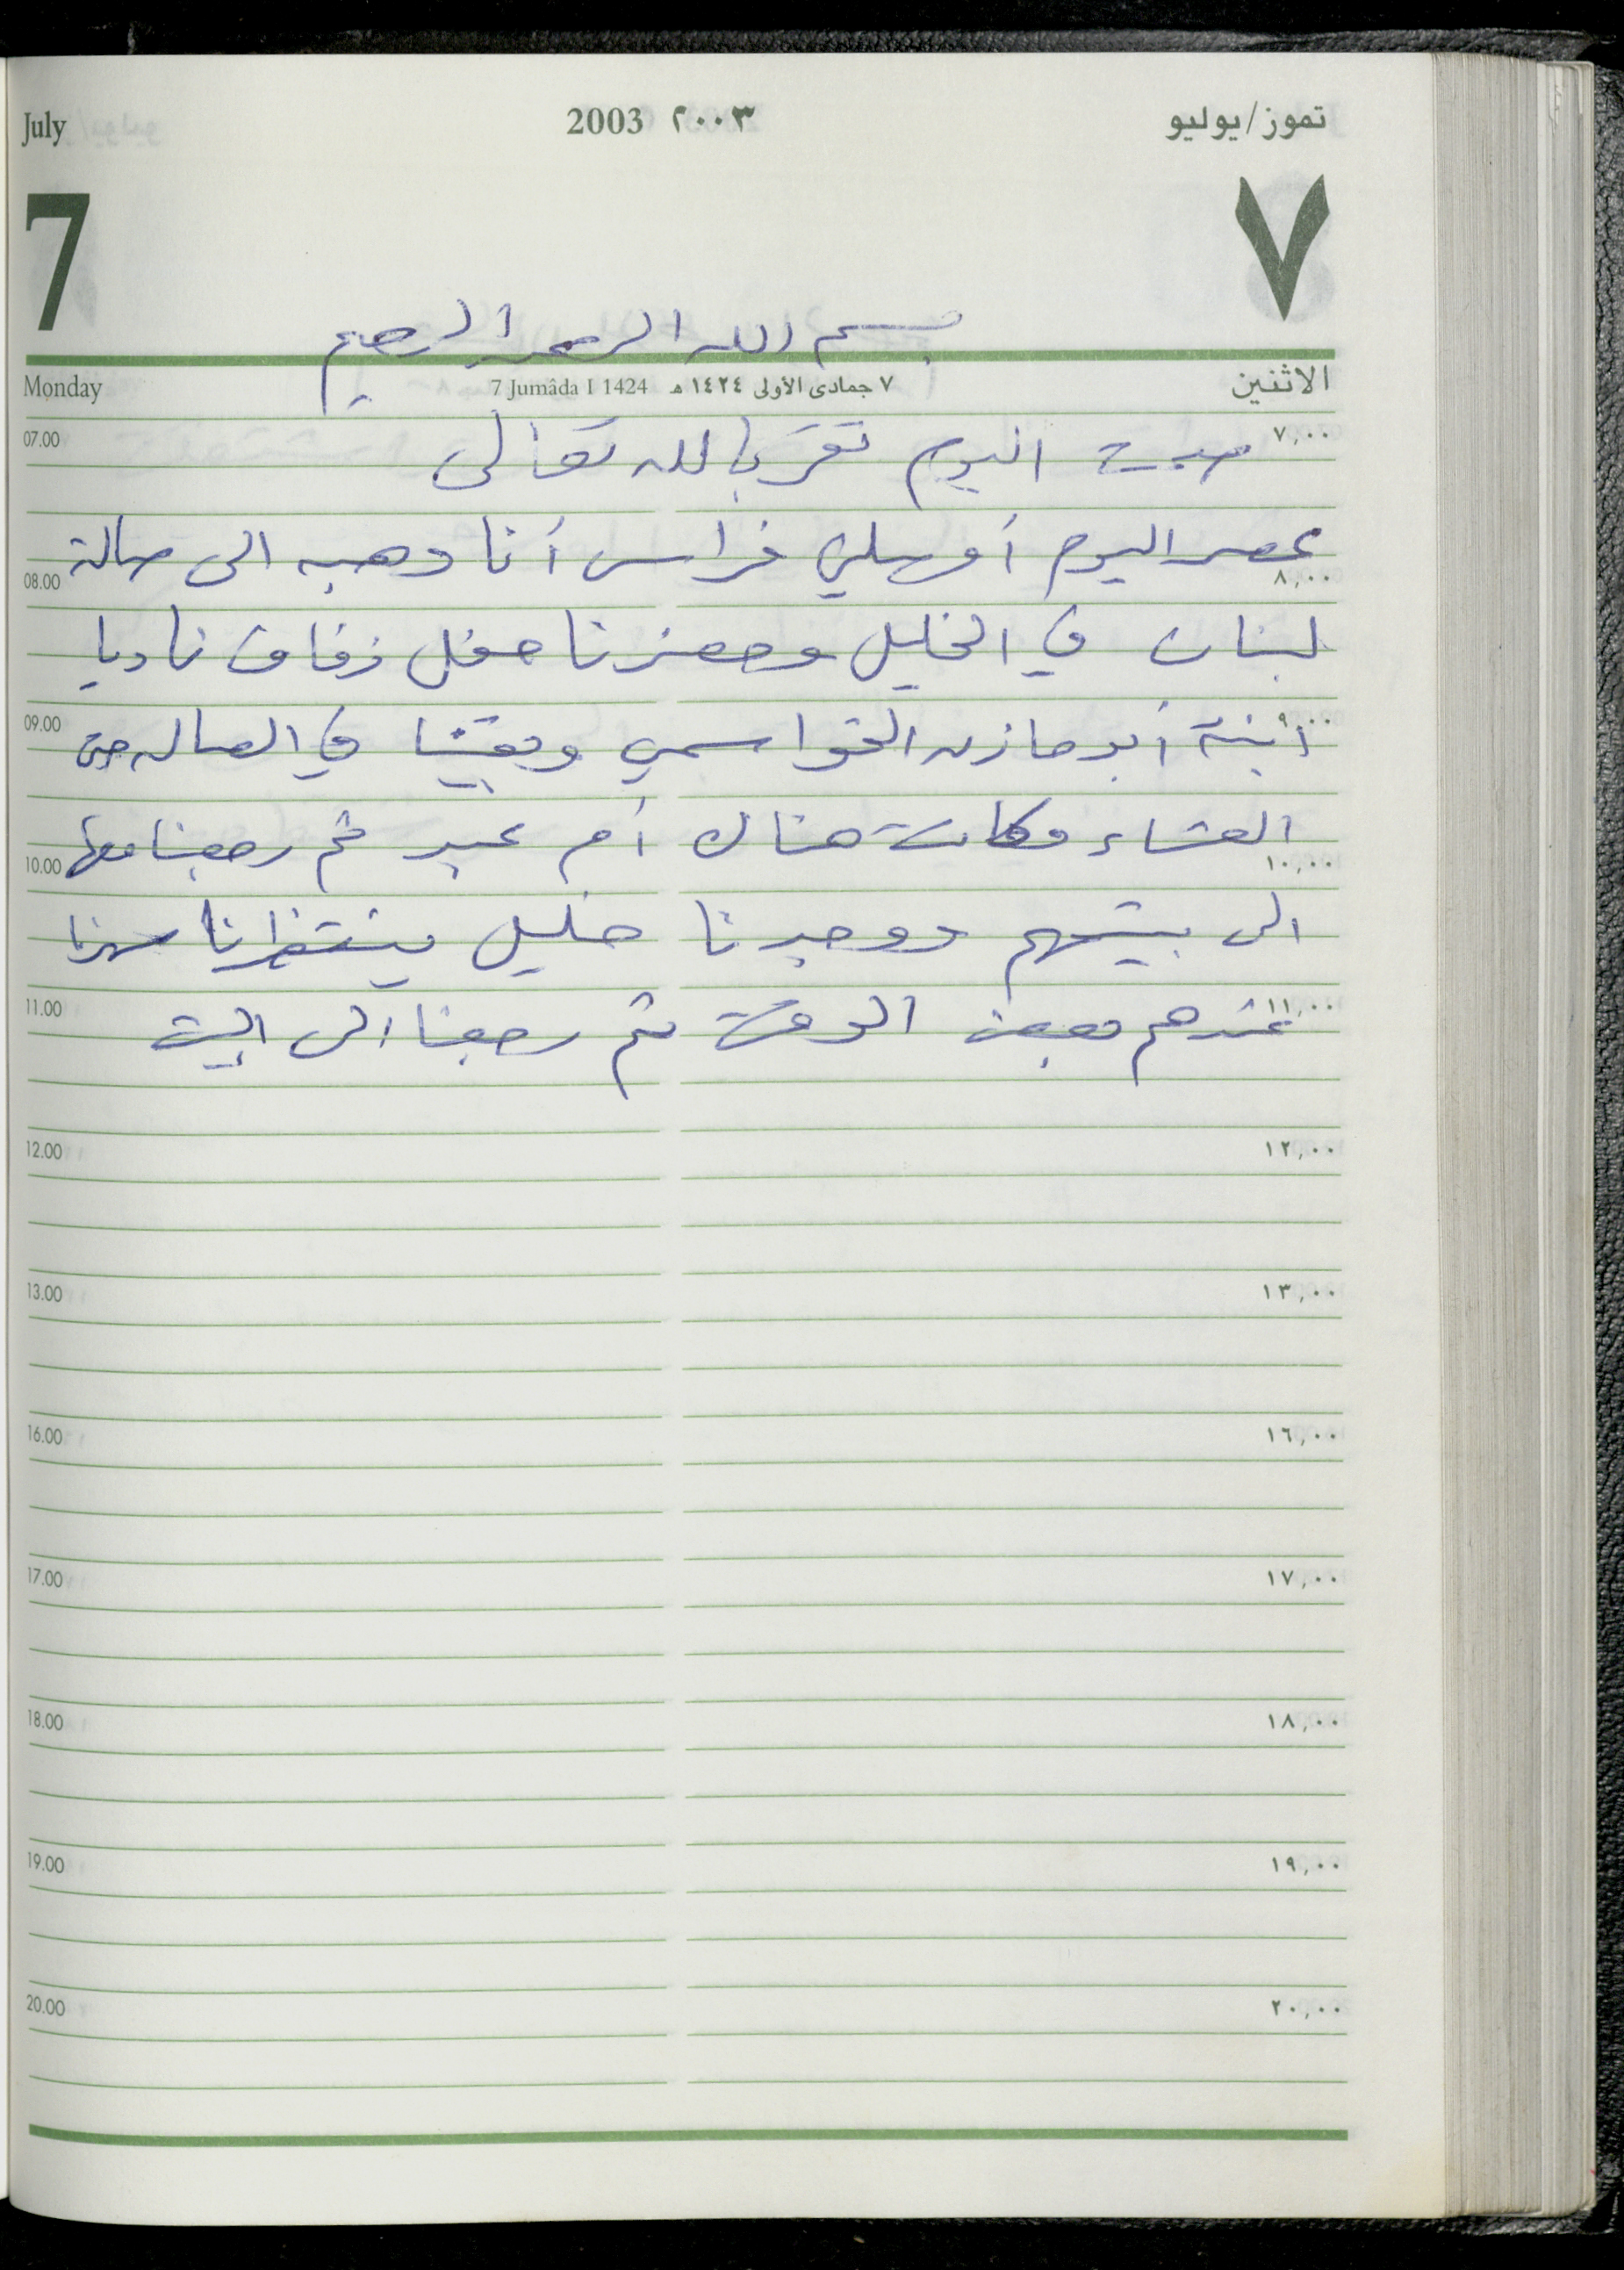 July 2003 ٢٠٠٣ تموز/يوليو
7 ٧
بسم الله الرحمن الرحيم
Monday 7 Jumâda I 1424 ٧ جمادى الأولى ١٤٢٤ هـ الاثنين
07.00 صمت اليوم تقربا لله تعالى ٧,٠٠
عصر اليوم أوصلني فراس أنا وهبه الى صالة
08.00 ٨,٠٠
لبنان في الخليل وحضرنا حفل زفاف ناديا
09.00 ٩,٠٠
أبنة أبو مازن القواسمي وبقينا في الصاله حتى
العشاء وكانت هناك أم عبد ثم رجعنا معها
10.00 ١٠,٠٠
الى بيتهم ووجدنا خليل ينتظرنا سهرنا
11.00 ١١,٠٠
عندهم بعض الوقت ثم رجعنا الى البيت
12.00 ١٢,٠٠
13.00 ١٣,٠٠
16.00 ١٦,٠٠
17.00 ١٧,٠٠
18.00 ١٨,٠٠
19.00 ١٩,٠٠
20.00 ٢٠,٠٠